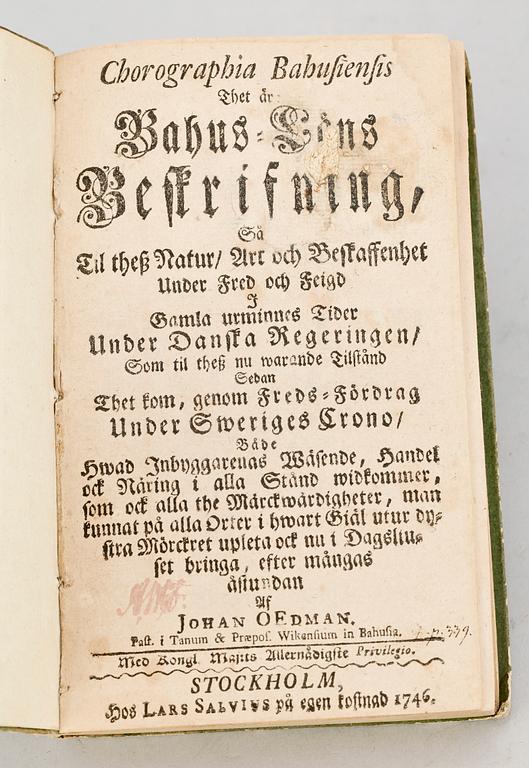 Chorographia Bahusiensis
Thet är
Bahus-Läns
Beskrifning,
Så
Til theß Natur/ Art och Beskaffenhet
Under Fred och Feigd
I
Gamla urminnes Tider
Under Danska Regeringen/
Som til theß nu warande Tilstånd
Sedan
Thet kom, genom Freds-Fördrag
Under Sweriges Crono/
Både
Hwad Inbyggarenas Wäsende, Handel
ock Näring i alla Stånd widkommer,
som ock alla the Märckwärdigheter, man
kunnat på alla Orter i hwart Giäl utur dy-
stra Mörckret upleta ock nu i Dagsliu-
set bringa, efter mångas
åstundan
Af
JOHAN OEDMAN.
Past. i Tanum & Præpos. Wikensium in Bahusia.
Med Kongl. Maj:ts Allernådigste Privilegio.
STOCKHOLM,
Hos LARS SALVIUS på egen kostnad 1746.